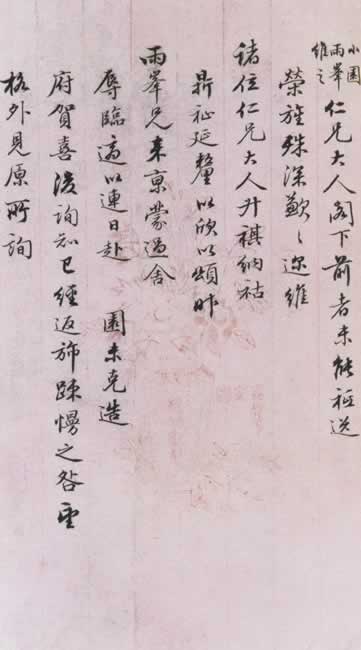 小園
雨峯
維之
仁兄大人閣下前者未能祗送
榮旌殊深歉々迩維
諸位仁兄大人升祺納祜
鼎祉延釐以欣以頌昨
雨峯兄来京蒙過舍
辱臨適以連日赴 園未克造
府賀喜後詢知已經返旆踈慢之咎望
格外見原所詢